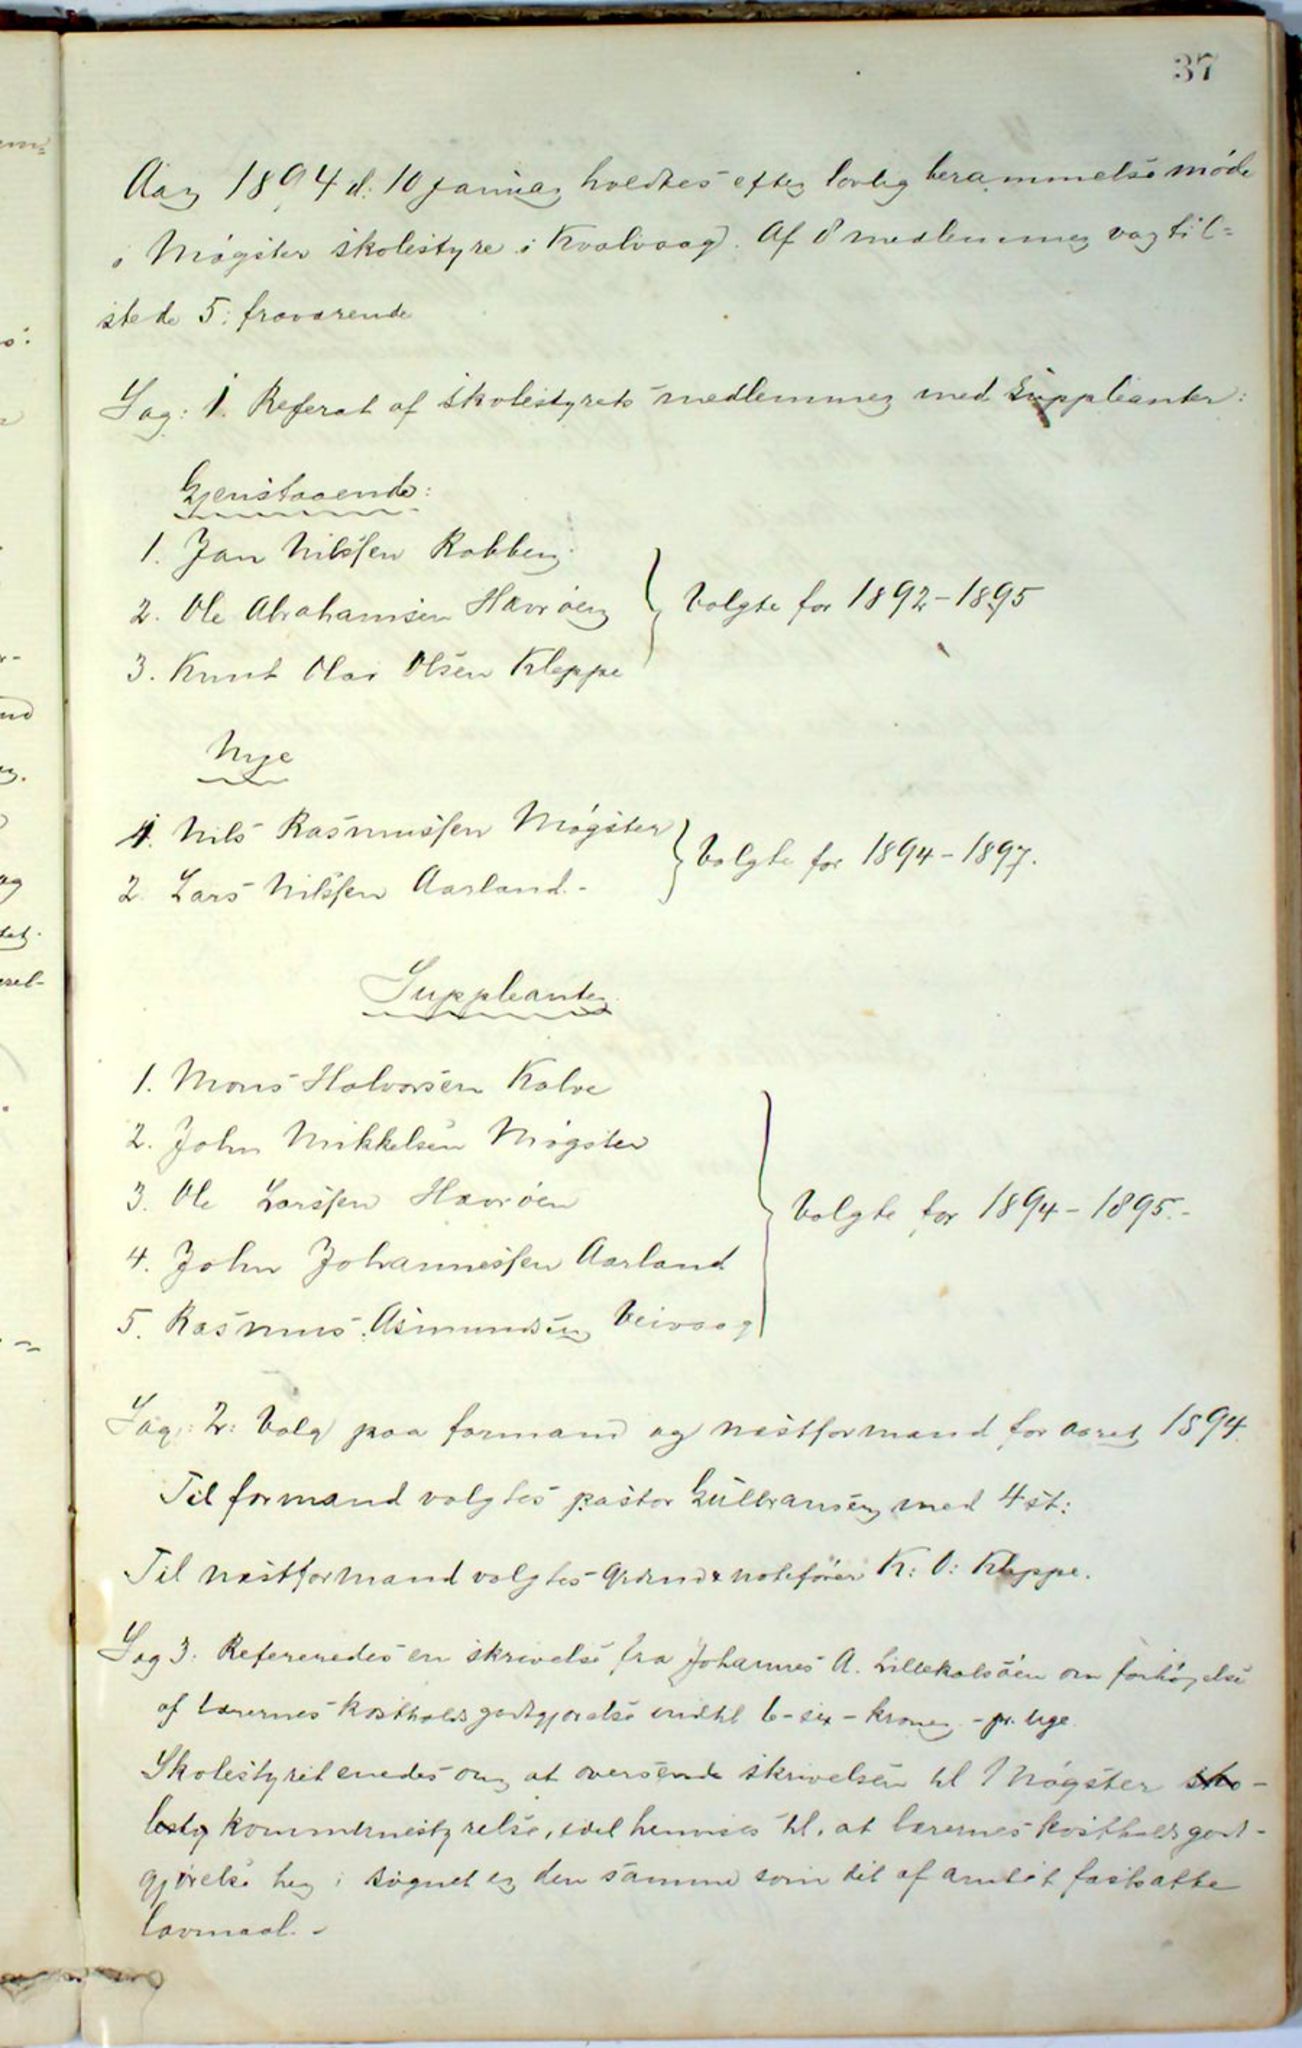 37
Aar 1894 d. 10 januar holdtes efter lovlig berammelse møde
i Møgster skolestyre i Kvalvaag. Af 8 medlemmer var til=
stede 5: fraværende
Sag: 1. Referat af skolestyrets medlemmer med suppleanter:
Gjenstaaende:
1. Jan Nilssen Rabben
2. Ole Abrahamsen Havrøen
3. Knut Olai Olsen Kleppe
Valgte for 1892-1895
Nye
1. Nils Rasmussen Møgster
2. Lars Nilssen Aarland.-
Valgte for 1894-1897.
Suppleanter
1. Mons Halvorsen Kalve
2. John Mikkelsen Møgster
3. Ole Larssen Havrøen
4. John Johannessen Aarland
5. Rasmus Asmundsen Veivaag
Valgte for 1894-1895.-
Sag: 2: Valg paa formand og næstformand for aaret 1894.
Til formand valgtes pastor Gulbransen med 4 st:
Til næstformand valgtes K: O: Kleppe.
Sag 3. Refereredes en skrivelse fra Johannes A. Lillekalsøen om forhøyelse
af lærernes kostholdsgodtgjørelse indtil 6-sex-kroner - pr. uge.
Skolestyret enedes om at oversende skrivelsen til Møgster sko-
lesty kommunestyrelse, idet henvises til, at lærernes kostholdsgodt-
gjørelse her i sognet er den samme som det af amtet fastsatte
lavmaal.-